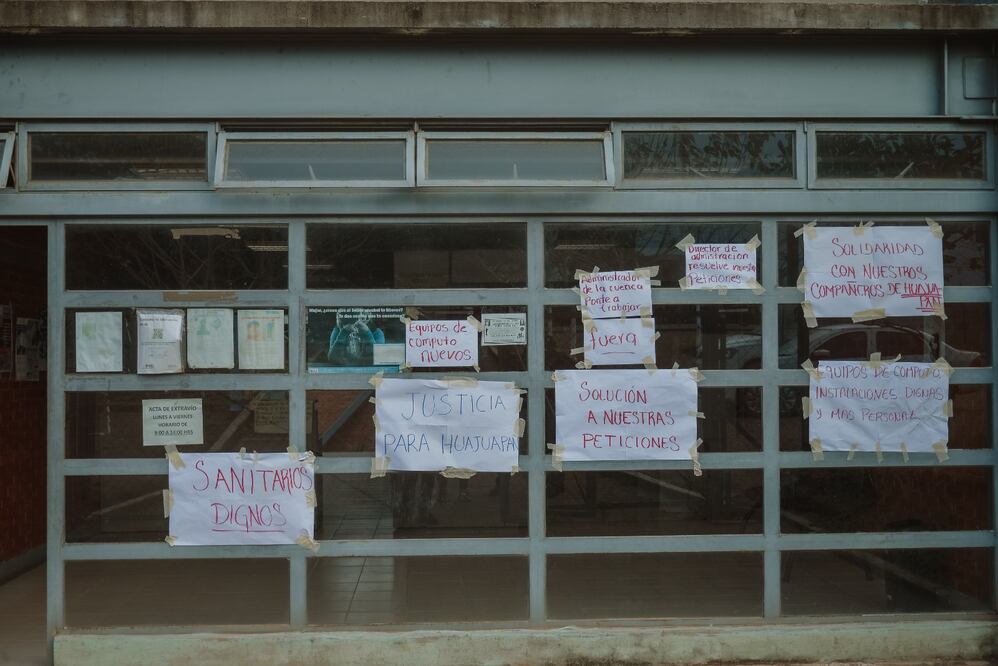 SOLIDARIDAD
CON NUESTROS
COMPAÑEROS DE HUAJUA-
PAN
Director de
administración
resuelve nuestras
Peticiones
Administrador
de la cuenca
Ponte a
trabajar
fuera
Equipos de
computo
nuevos.
ACTA DE EXTRAVÍO
LUNES A VIERNES
HORARIO DE
JUSTICIA
PARA HUAJUAPAN
SOLUCIÓN
A NUESTRAS
PETICIONES
EQUIPOS DE COMPUTO,
INSTALACIONES DIGNAS
Y MAS PERSONAL
SANITARIOS
DIGNOS